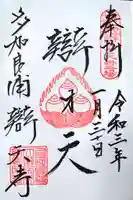 奉拝
令和三年
一月三日
辯才天
多加良浦辯天寺